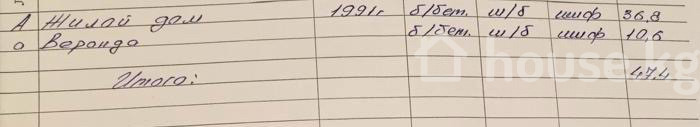 А Жилой дом 1991г б/бет. ш/б шиф 36,8
о Веранда б/бет. ш/б шиф 10,6
Итого: 47,4
house.kg